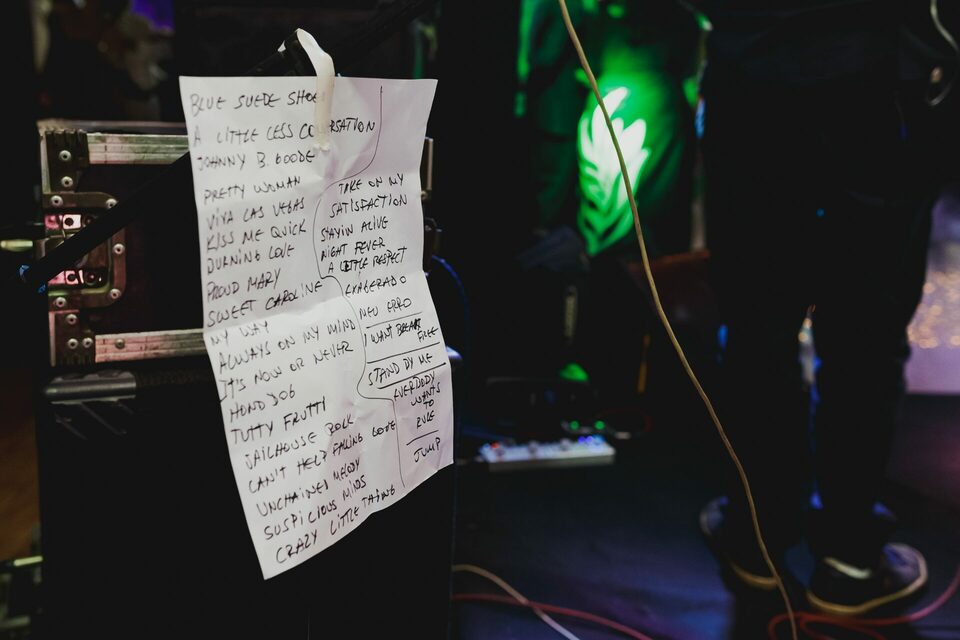 BLUE SUEDE SHOE
A LITTLE LESS CO RSATION
JOHNNY B. GOODE
PRETTY WOMAN
VIVA LAS VEGAS
KISS ME QUICK
BURNING LOVE
PROUD MARY
SWEET CAROLINE
MY WAY
ALWAYS ON MY MIND
IT'S NOW OR NEVER
HOND DOG
TUTTY FRUTTI
JAILHOUSE ROCK
CAN'T HELP FALLING LOVE
UNCHAINED MELODY
SUSPICIOUS MINDS
CRAZY LITTLE THING
TAKE ON MY
SATISFACTION
STAYIN ALIVE
NIGHT FEVER
A LITTLE RESPECT
EXAGERADO
MEU ERRO
I WANT BREAK
FREE
STAND BY ME
EVERBODY
WANTS
TO
RULE
JUMP